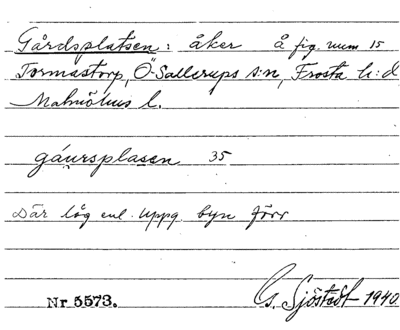 Gårdsplatsen: åker å fig. num 15
Tormastorp, Ö-Sallerups s:n, Frosta h:d
Malmöhus l.
gáu̥rsplasen 35
Där låg enl. uppg. byn förr
Nr 5573. Gs. Sjöstedt 1940.